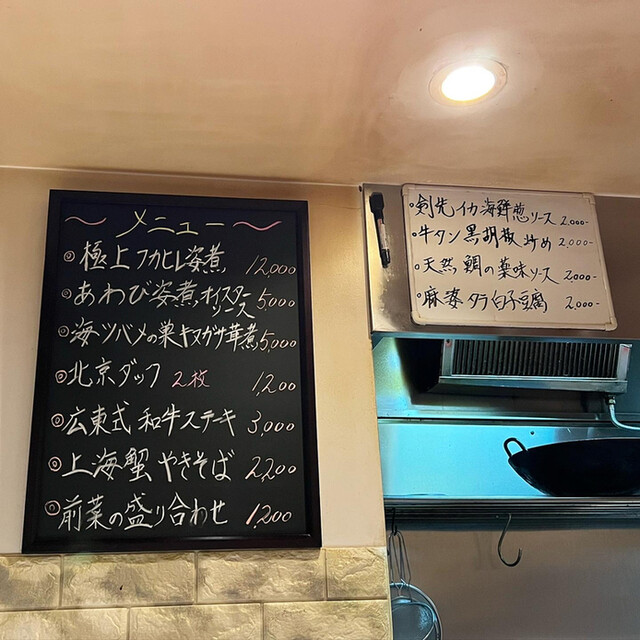 ～メニュー～
◎極上フカヒレ姿煮 12,000
◎あわび姿煮オイスター
ソース 5,000
◎海ツバメの巣キヌガサ茸煮 5,000
◎北京ダック 2枚 1,200
◎広東式 和牛ステーキ 3,000
◎上海蟹 やきそば 2,200
◎前菜の盛り合わせ 1,200
・剣先イカ海鮮葱ソース 2,000-
・牛タン黒胡椒炒め 2,000-
・天然鯛の薬味ソース 2,000-
・麻婆タラ白子豆腐 2,000-